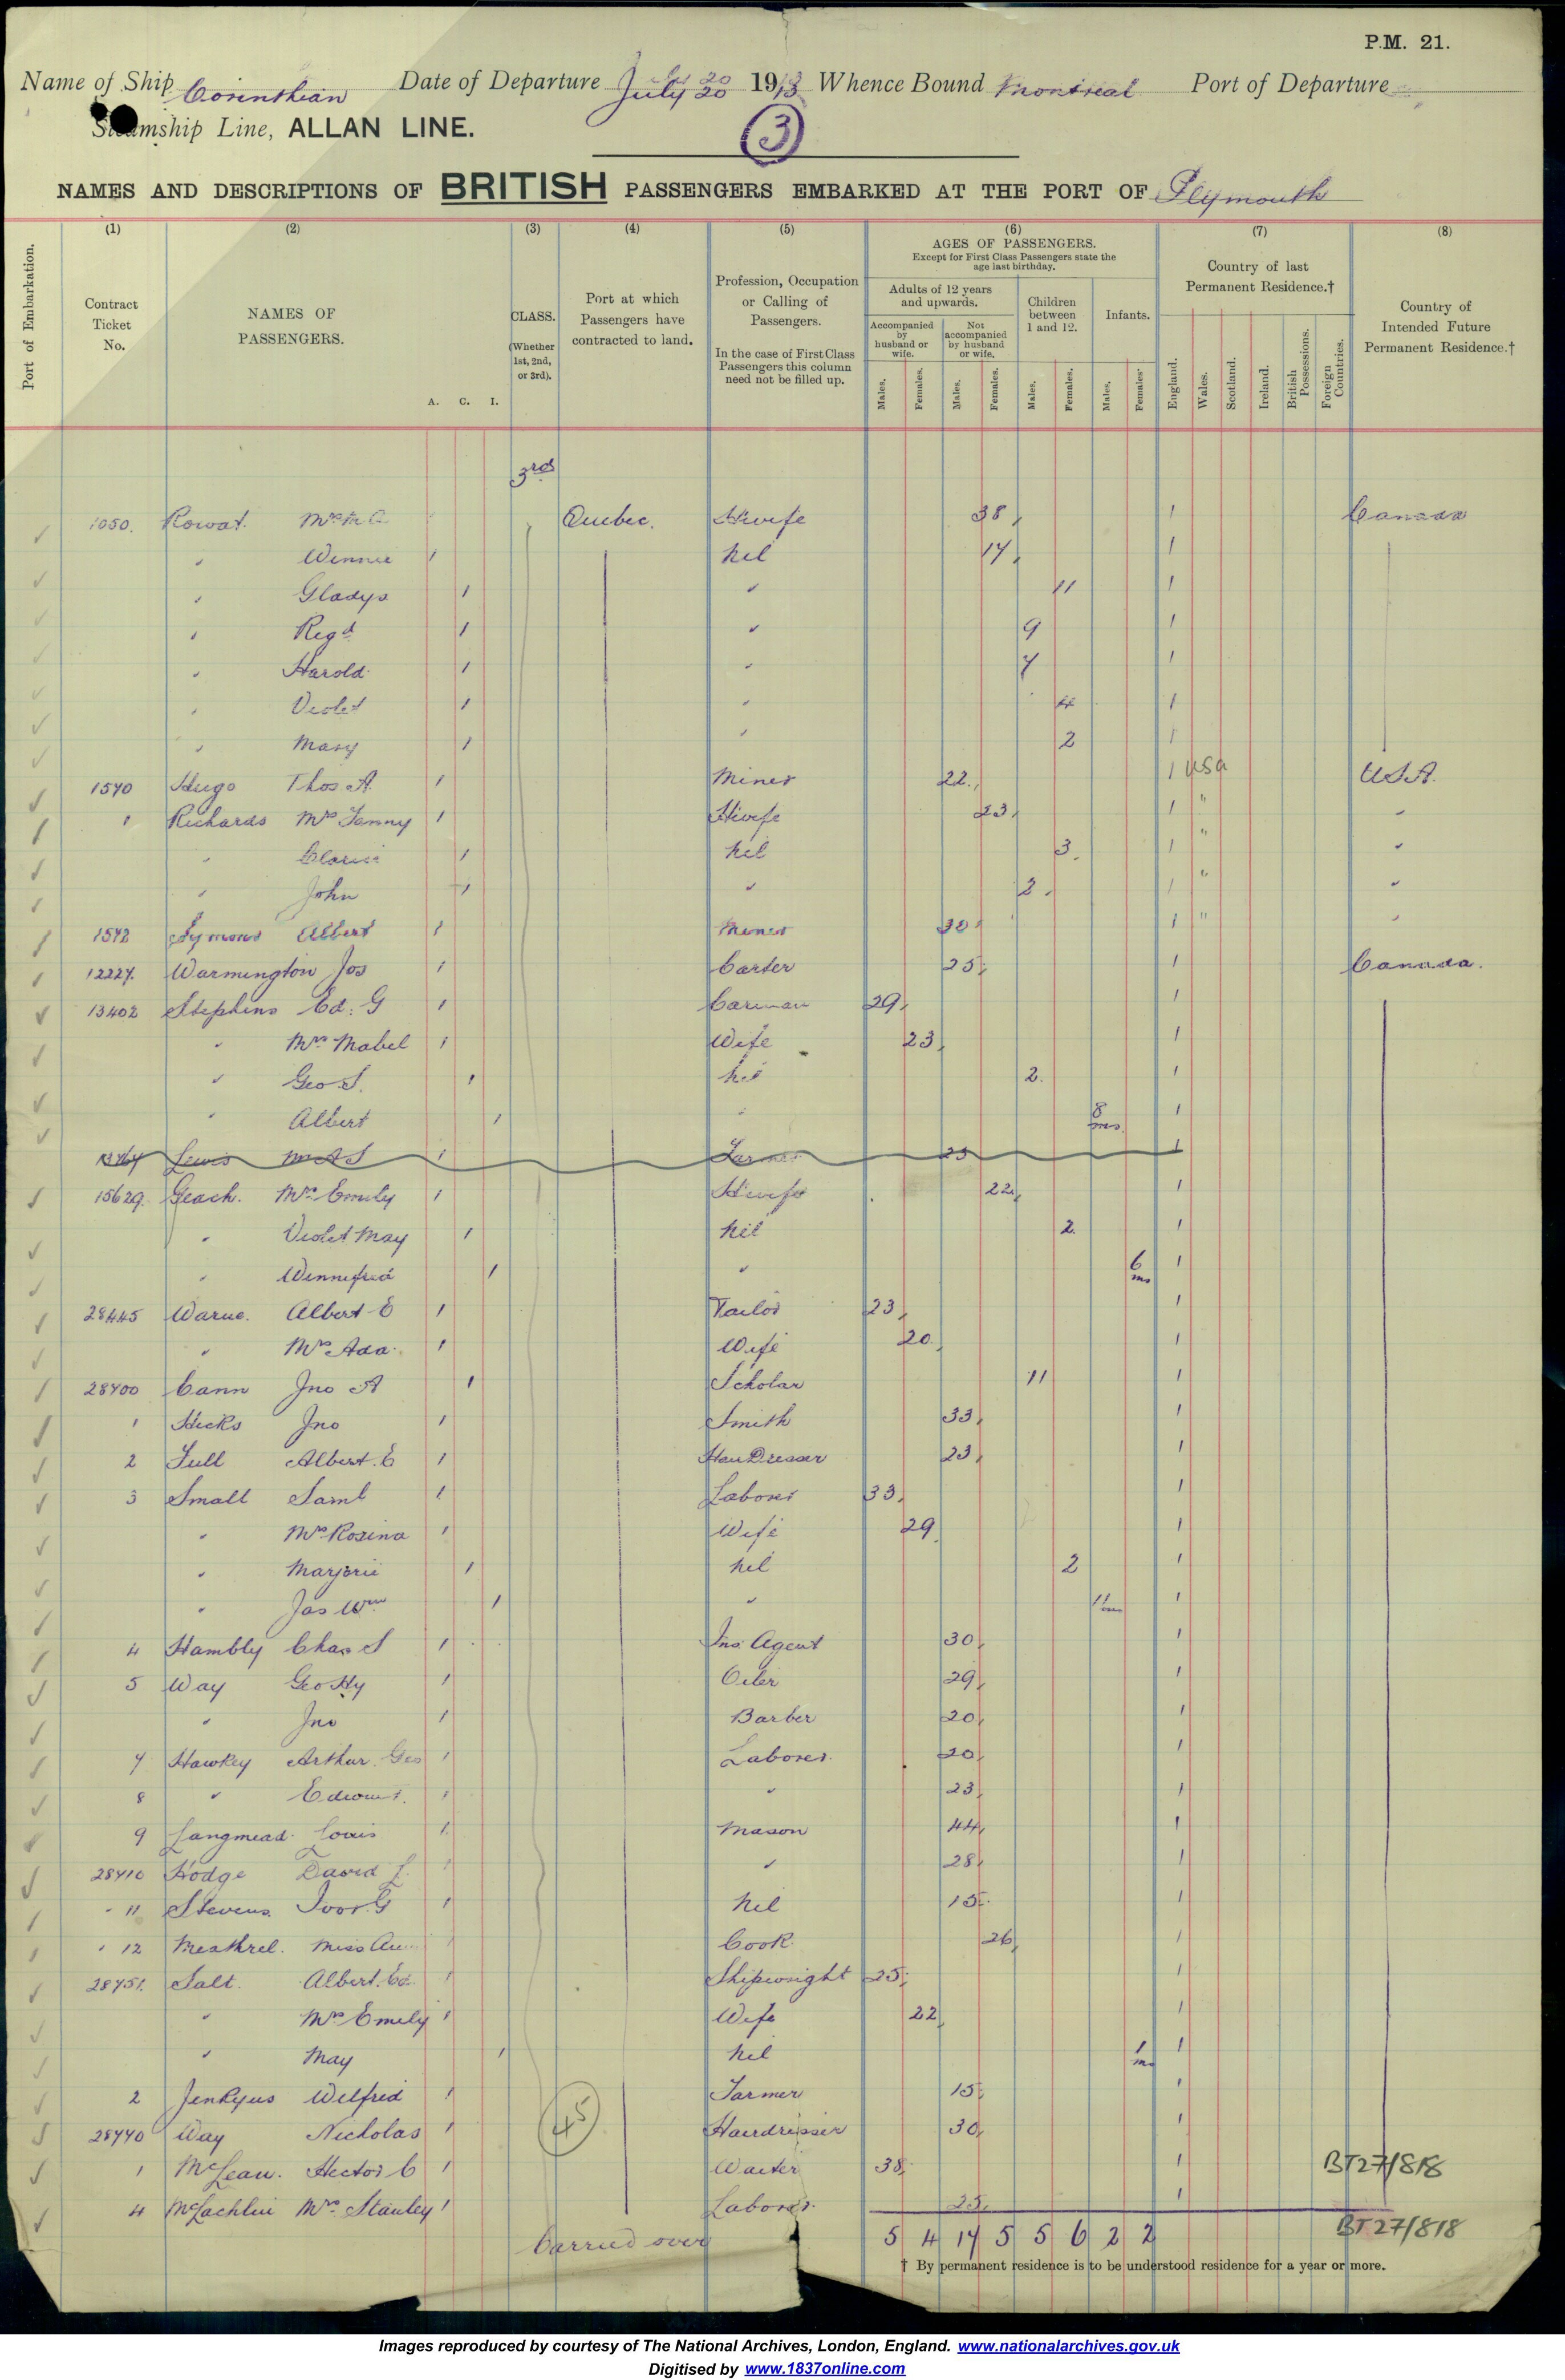 P.M. 21.
Name of Ship Corinthian Date of Departure July 20 1913 Whence Bound Montreal Port of Departure
Steamship Line, ALLAN LINE.
3
NAMES AND DESCRIPTIONS OF BRITISH PASSENGERS EMBARKED AT THE PORT OF Plymouth
(1) (2) (3) (4) (5) (6) (7) (8)
Port of Embarkation.
Contract Ticket No.
NAMES OF PASSENGERS.
A. C. I.
CLASS. (Whether 1st, 2nd, or 3rd).
Port at which Passengers have contracted to land.
Profession, Occupation or Calling of Passengers.
In the case of First Class Passengers this column need not be filled up.
AGES OF PASSENGERS.
Except for First Class Passengers state the age last birthday.
Adults of 12 years and upwards.
Accompanied by husband or wife.
Not accompanied by husband or wife.
Children between 1 and 12.
Infants.
Males. Females. Males. Females. Males. Females. Males. Females.
Country of last Permanent Residence.†
England. Wales. Scotland. Ireland. British Possessions. Foreign Countries.
Country of Intended Future Permanent Residence.†
3rd
1050. Rowat. Mrs M A Quebec. Hwife 38 1 Canada
" Winnie 1 Nil 14 1
" Gladys 1 " 11 1
" Regd 1 " 9 1
" Harold 1 " 7 1
" Violet 1 " 4 1
" Mary 1 " 2 1
1570 Hugo Thos. A. 1 Miner 22 1 USA U.S.A.
" Richards Mrs Fanny 1 Hwife 23 1 " "
" 1 Nil 3 1 " "
" John 1 " 2 1 " "
1572 Symons Albert 1 Miner 30 1 " "
12227. Warmington Jos 1 Carter 25 1 Canada.
13402 Stephens Ed. G 1 Carman 29 1
" Mrs Mabel 1 Wife 23 1
" Geo S. 1 Nil 2 1
" Albert 1 " 8 mos. 1
Lewis Mr A S 1 Farmer 25 1
15629. Geach. Mrs Emily 1 Hwife 22 1
" Violet May 1 Nil 2 1
" Winnifred 1 " 6 ms 1
28445 Warne. Albert E 1 Tailor 23 1
" Mrs Ada. 1 Wife 20 1
28700 Cann Jno A 1 Scholar 11 1
1 Hicks Jno 1 Smith 33 1
2 Full Albert. E 1 HairDresser 23 1
3 Small Saml 1 Laborer 33 1
" Mrs Rosina 1 Wife 29 1
" Marjorie 1 Nil 2 1
" Jas Wm 1 " 11 ms 1
4 Hambly Chas S 1 Ins. Agent 30 1
5 Way Geo Hy 1 Oiler 29 1
" Jno 1 Barber 20 1
7 Hawkey Arthur Geo 1 Laborer. 20 1
8 " 1 " 23 1
9 Langmead. Louis 1 Mason 44 1
28710 Hodge David L. 1 " 28 1
" 11 Stevens. Ivor. G 1 Nil 15 1
" 12 Miss 1 Cook. 26 1
28751. Salt. Albert. Ed. 1 Shipwright 25 1
" Mrs Emily 1 Wife 22 1
" May 1 Nil 1 m 1
2 Jenkyns Wilfrid 1 Farmer 15 1
28770 Way Nicholas 1 Hairdresser 30 1
1 McLean. Hector C 1 Waiter 38 1
4 McLachlin Stanley 1 Laborer. 25 1
45
Carried over
5 4 17 5 5 6 2 2
BT27/818
BT27/818
† By permanent residence is to be understood residence for a year or more.
Images reproduced by courtesy of The National Archives, London, England. www.nationalarchives.gov.uk
Digitised by www.1837online.com